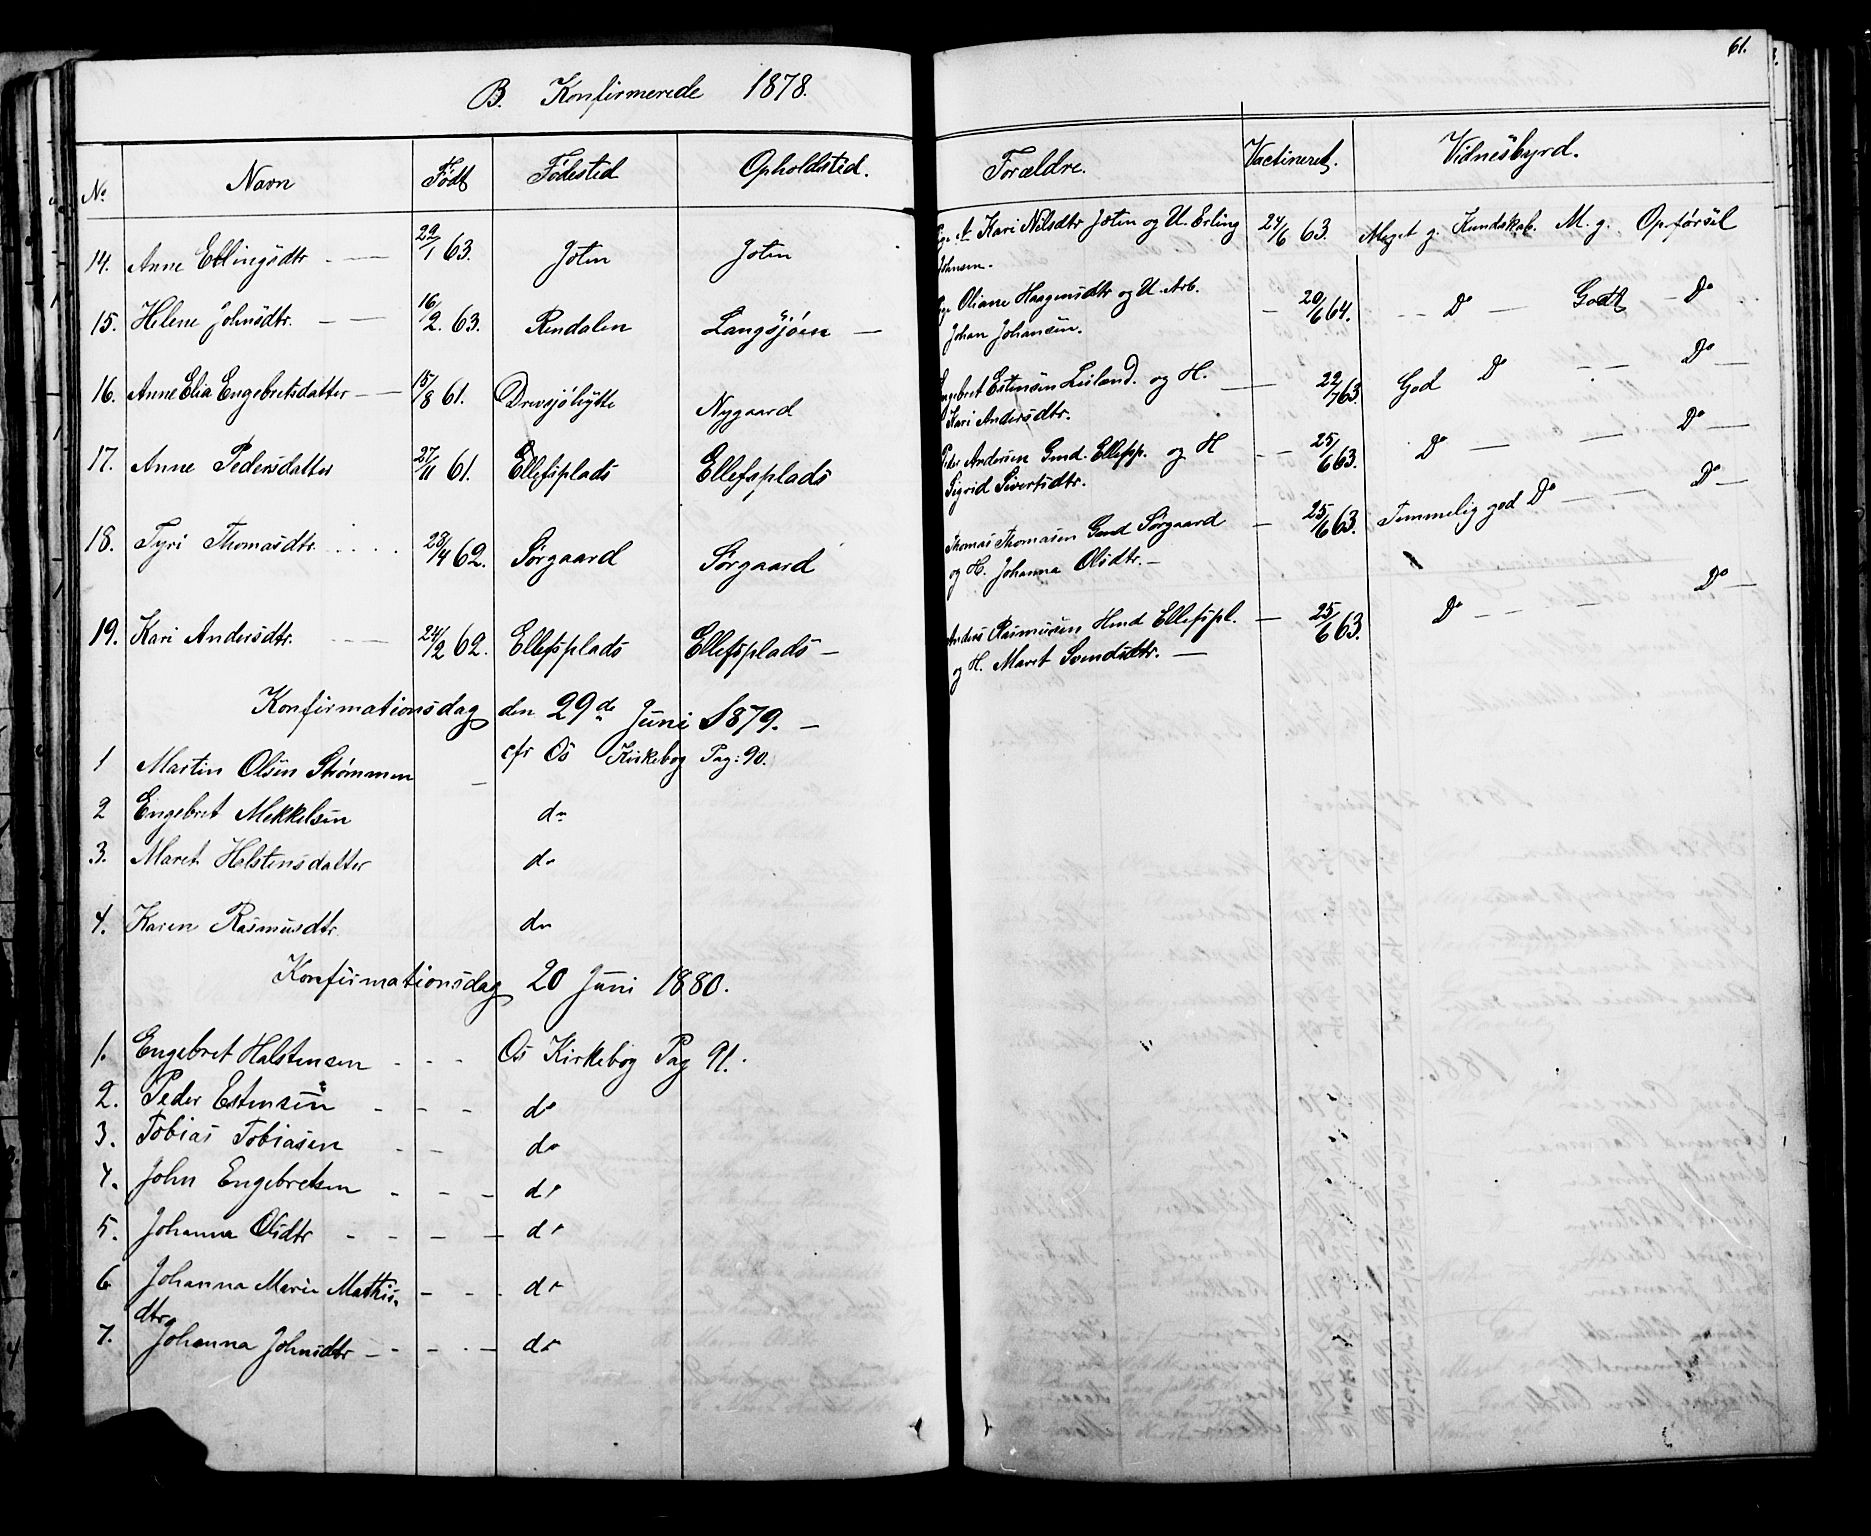 61.
B. Konfirmerede 1878.
No Navn Født Fødested Opholdsted. Forældre. Vaccineret. Vidnesbyrd.
14. Anne Erlingsdtr 29/1 63. Joten Joten Pge A Kari Nilsdtr Joten og U. Erling 24/6 63. Meget g. Kundskab. M. g. Opførsel
Johnsen.
15. Helene Johnsdtr. 16/2. 63. Rendalen Langsjøen — Pge Oliane Haagensdtr og U. Arb. — 20/6 64. Do — Godt — Do
Johan Johansen.
16. Anne Elia Engebretsdatter 15/8 61. Drevsjøhytte Nygaard Engebret Estensen Leiland. og H. 22/7 63. God Do Do —
Kari Andersdtr.
17. Anne Pedersdatter 27/11 61. Ellefsplads Ellefsplads Peder Andersen Gmd. Ellefspl. og H 25/6 63. Do — — Do —
Sigrid Sivertsdtr.
18. Tyri Thomasdtr. 28/4 62. Sørgaard Sørgaard Thomas Thomasen Gmd Sørgaard — 25/6 63. Temmelig god Do — — Do —
og H. Johanna Olsdtr. —
19. Kari Andersdtr. 24/2 62. Ellefsplads Ellefsplads — Anders Rasmusen Hmd Ellefspl. — 25/6 63. Do — — Do —
og H. Maret Svendsdtr. —
Konfirmationsdag den 29de Juni 1879. —
1 Martin Olsen Strømmen — cfr Os Kirkebog Pag: 90.
2 Engebret Mikkelsen do
3. Maret Halstensdatter do
4. Karen Rasmusdtr. do
Konfirmationsdag 20 Juni 1880.
1. Engebret Halstensen - - - Os Kirkebog Pag 91.
2. Peder Estensen - - - do
3. Tobias Tobiasen - - do
4. John Engebretsen - - - do
5. Johanna Olsdtr - - - - do
6 Johanna Marie Mathis- - - - do
dtr.
7. Johanna Johnsdtr - - - - do